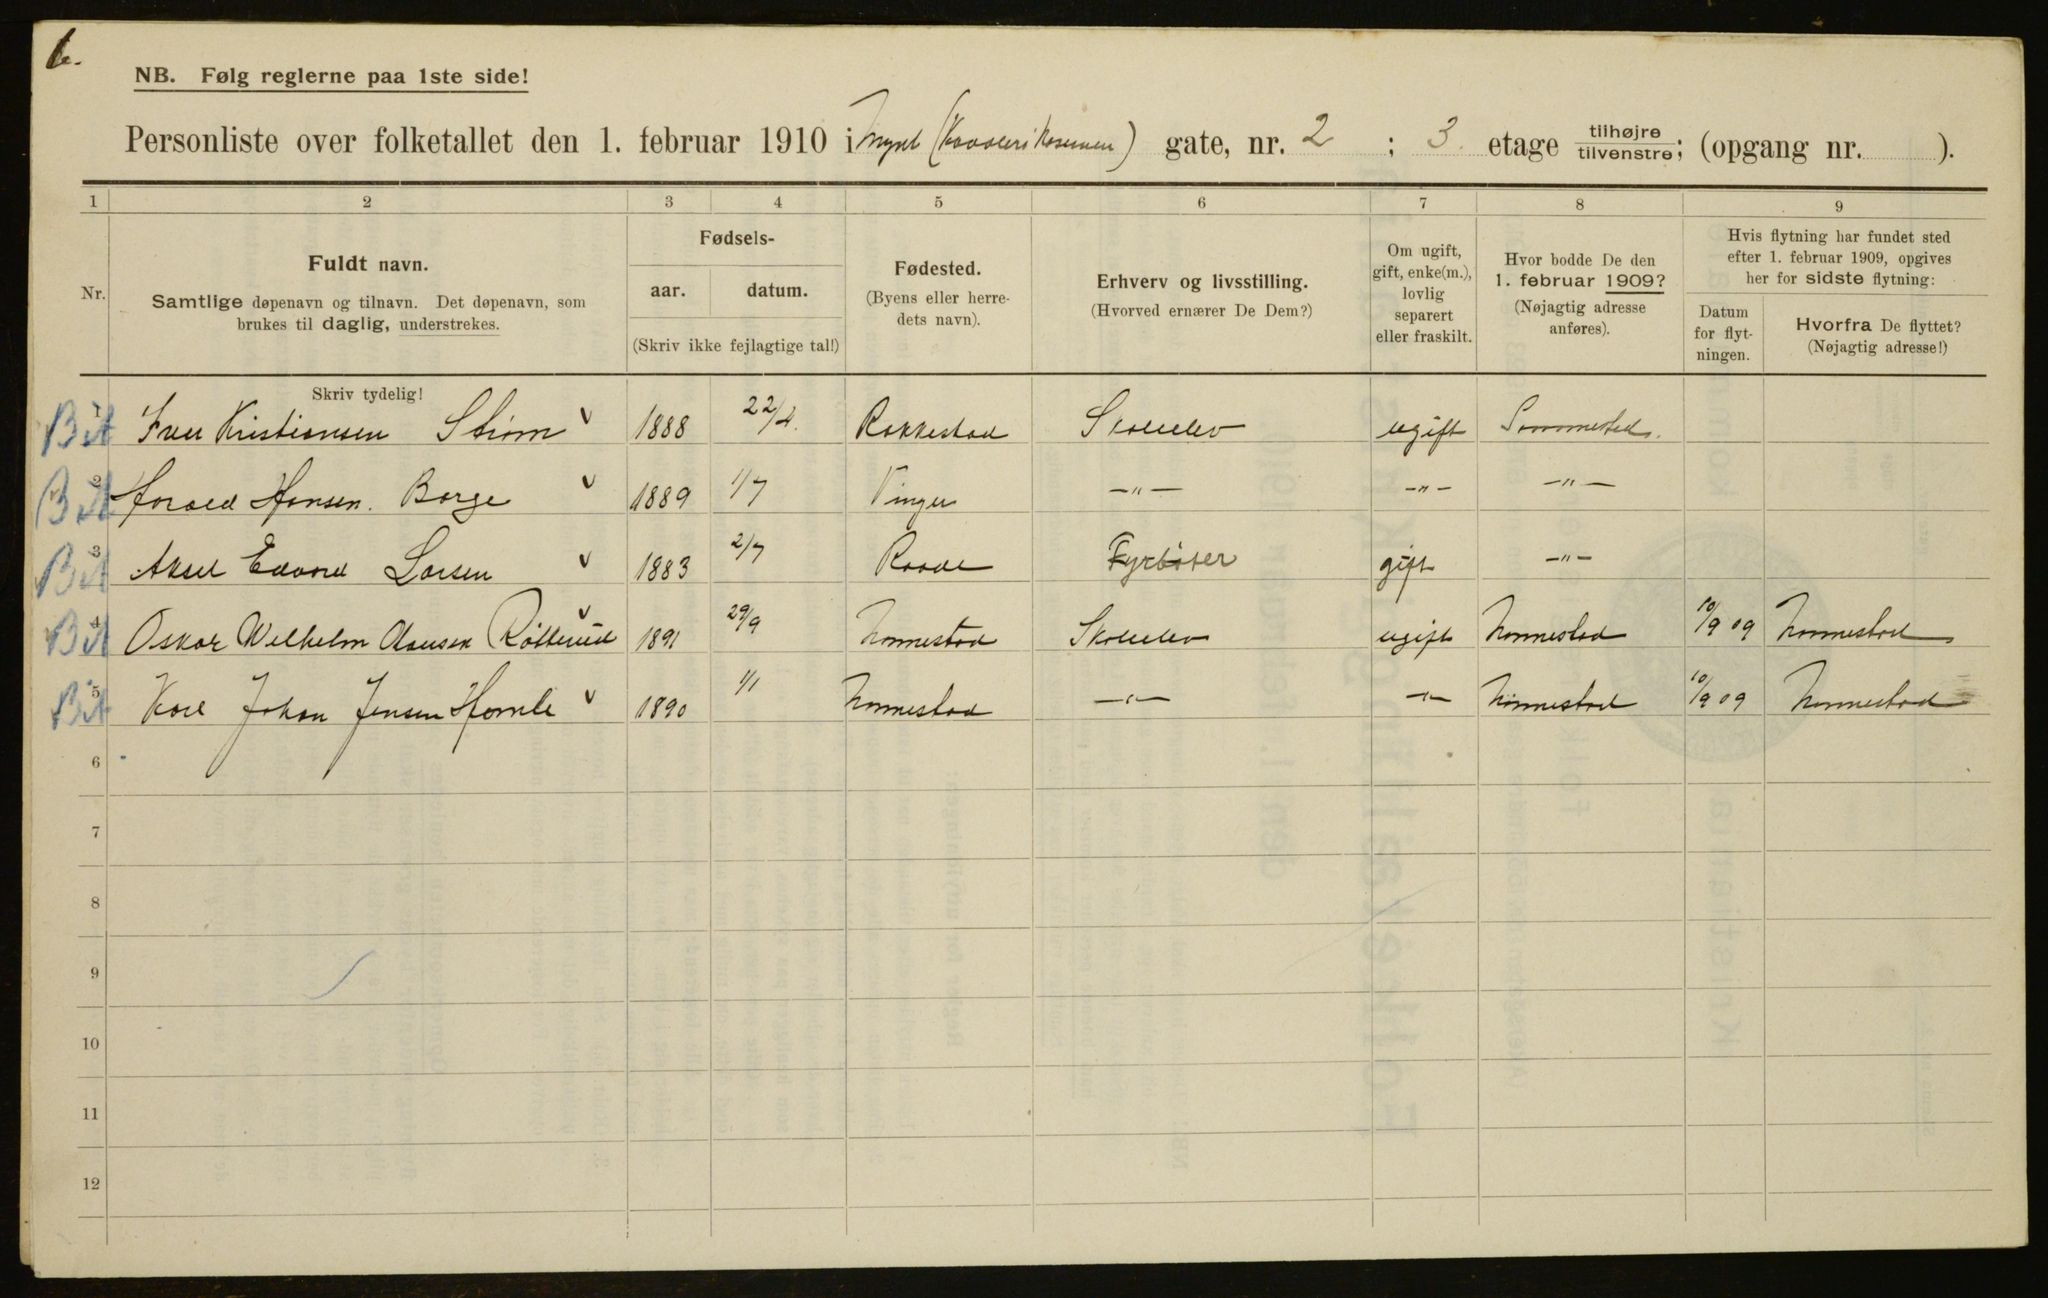 6.
NB. Følg reglerne paa 1ste side!
Personliste over folketallet den 1. februar 1910 i gate, nr. 2 ; 3. etage tilhøjre / tilvenstre; (opgang nr. ).
1 2 3 4 5 6 7 8 9
Nr.
Fuldt navn.
Samtlige døpenavn og tilnavn. Det døpenavn, som
brukes til daglig, understrekes.
Skriv tydelig!
Fødsels-
aar. datum.
(Skriv ikke fejlagtige tal!)
Fødested.
(Byens eller herre-
dets navn).
Erhverv og livsstilling.
(Hvorved ernærer De Dem?)
Om ugift,
gift, enke(m.),
lovlig
separert
eller fraskilt.
Hvor bodde De den
1. februar 1909?
(Nøjagtig adresse
anføres).
Hvis flytning har fundet sted
efter 1. februar 1909, opgives
her for sidste flytning:
Datum
for flyt-
ningen.
Hvorfra De flyttet?
(Nøjagtig adresse!)
1 Kristiansen Strøm 1888 22/4. Rakkestad Skoleelev ugift
2 Harald Hansen. Borge 1889 1/7 Vinger —"— —"— —"—
3 Aksel Edvard Larsen 1883 2/7 Raade Fyrbøter gift —"—
4 Oskar Wilhelm 1891 29/9 Skoleelev ugift 10/9 09
5 Karl Johan Jensen 1890 1/1 —"— —"— 10/9 09
6
7
8
9
10
11
12